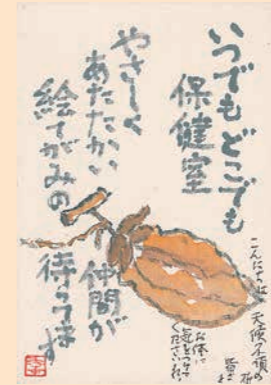 いつでもどこでも
保健室
やさしく
あたたかい
絵てがみの
仲間が
待ってます
こんにちは
お体に
気をつけて
くださいね